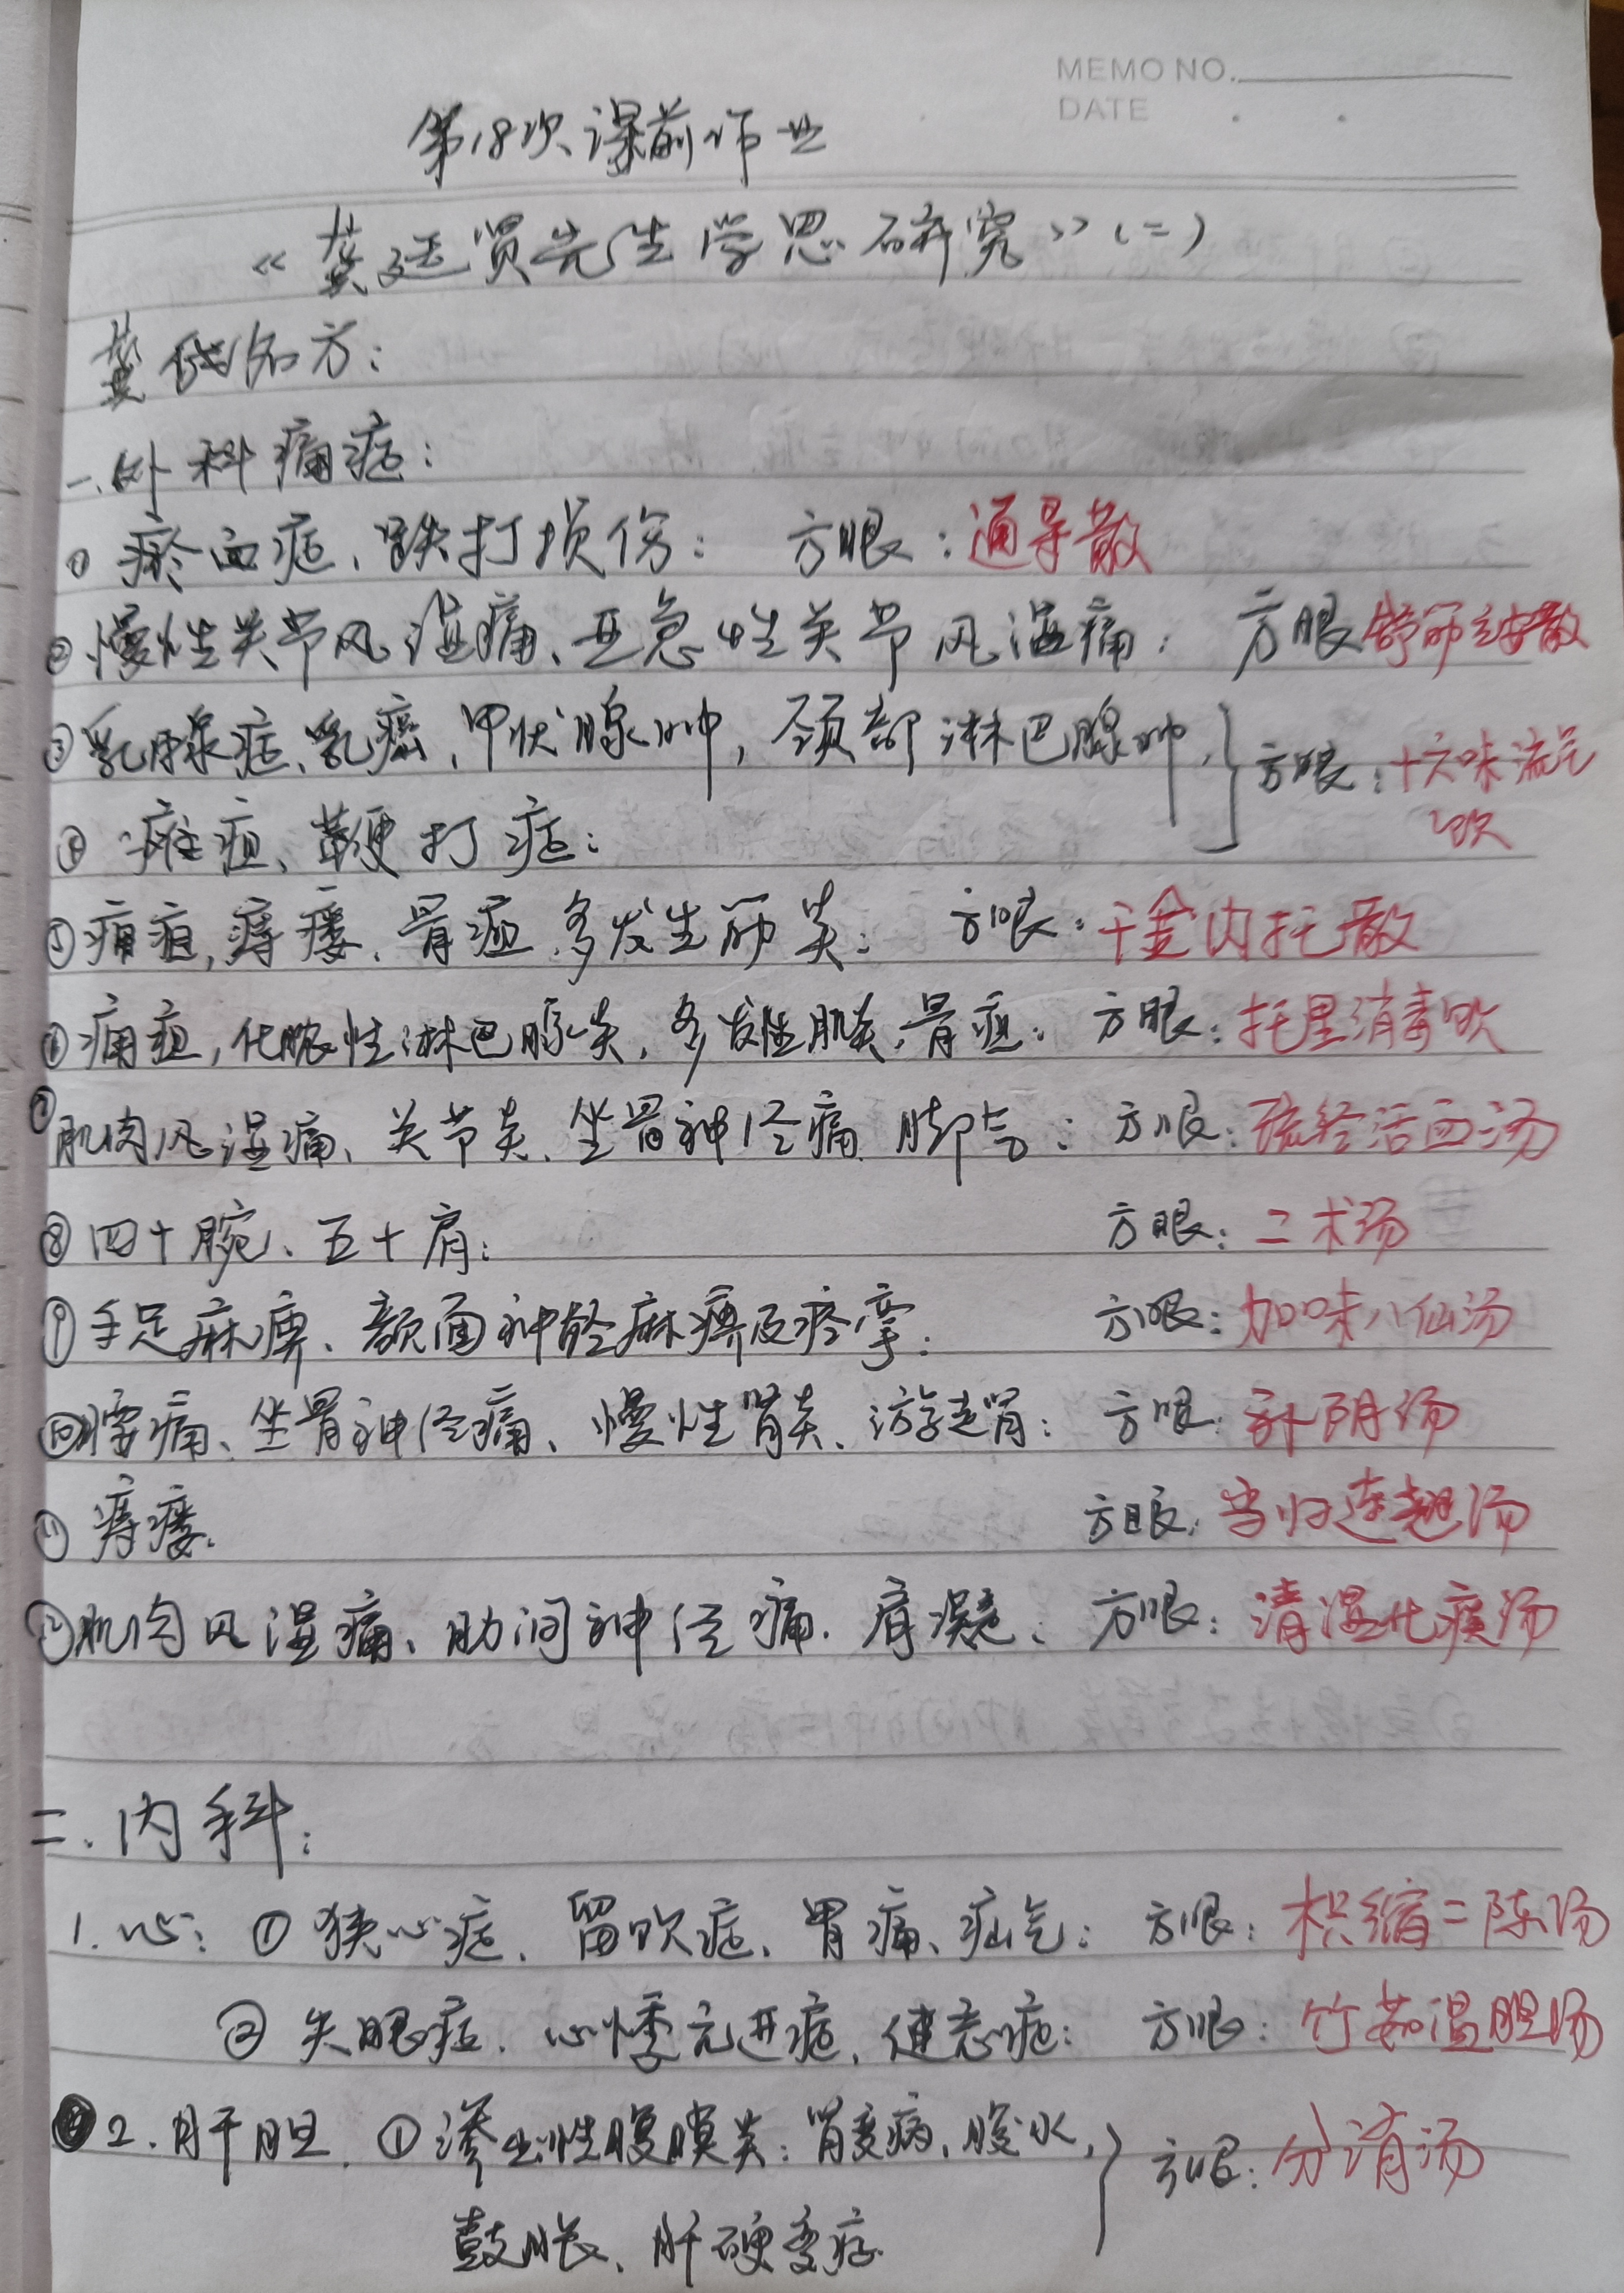 MEMO NO.
DATE
第18次课前作业
《龚廷贤先生学思研究》(二)
龚氏名方:
一.外科痛症:
① 瘀血症、跌打损伤: 方眼:通导散
② 慢性关节风湿痛、亚急性关节风湿痛: 方眼 舒筋立安散
③ 乳腺症、乳癌,甲状腺肿,颈部淋巴腺肿, 方眼:十六味流气
④ 瘫疽、鞕打症: 饮
⑤ 痈疽,痔瘘、骨疽、多发生筋炎: 方眼:千金内托散
⑥ 痈疽,化脓性淋巴腺炎,多发性肌炎,骨疽: 方眼:托里消毒饮
⑦ 肌肉风湿痛、关节炎、坐骨神经痛、脚气: 方眼:疏经活血汤
⑧ 四十腕、五十肩: 方眼:二术汤
⑨ 手足麻痹、颜面神经麻痹及痉挛: 方眼:加味八仙汤
⑩ 腰痛、坐骨神经痛、慢性肾炎、游走肾: 方眼:补阴汤
⑪ 痔瘘: 方眼:当归连翘汤
⑫ 肌肉风湿痛、肋间神经痛、肩凝: 方眼:清湿化痰汤
二.内科:
1.心: ① 狭心症、留饮症、胃痛、疝气: 方眼:枳缩二陈汤
② 失眠症、心悸亢进症,健忘症: 方眼:竹茹温胆汤
2.肝胆. ① 渗出性腹膜炎:肾变病、腹水, 方眼:分消汤
鼓胀、肝硬变症